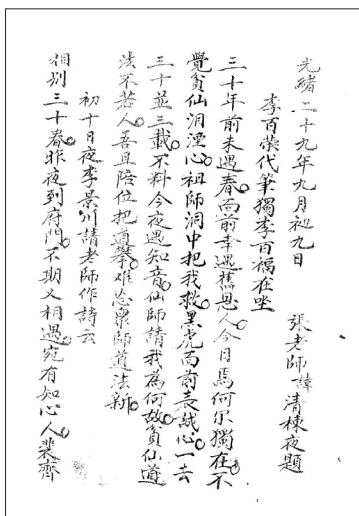 光緒二十九年九月初九日　張老師諱清棟夜題
李百荣代筆獨李百福在坐
三十年前未遇春。面前幸遇舊恩人。今日為何尔獨在。不
覺貧仙泪溼心。祖師洞中把我救。黑虎面前表誠心。一去
三十並三載。不料今夜遇知音。仙師請我為何故。貧仙道
法不惹人。吾且陪位把道攀。难忘衆師道法新。
初十日夜李景川請老師作詩云
相别三十春。昨夜到府門。不期又相遇。宛有知心人。裴齊